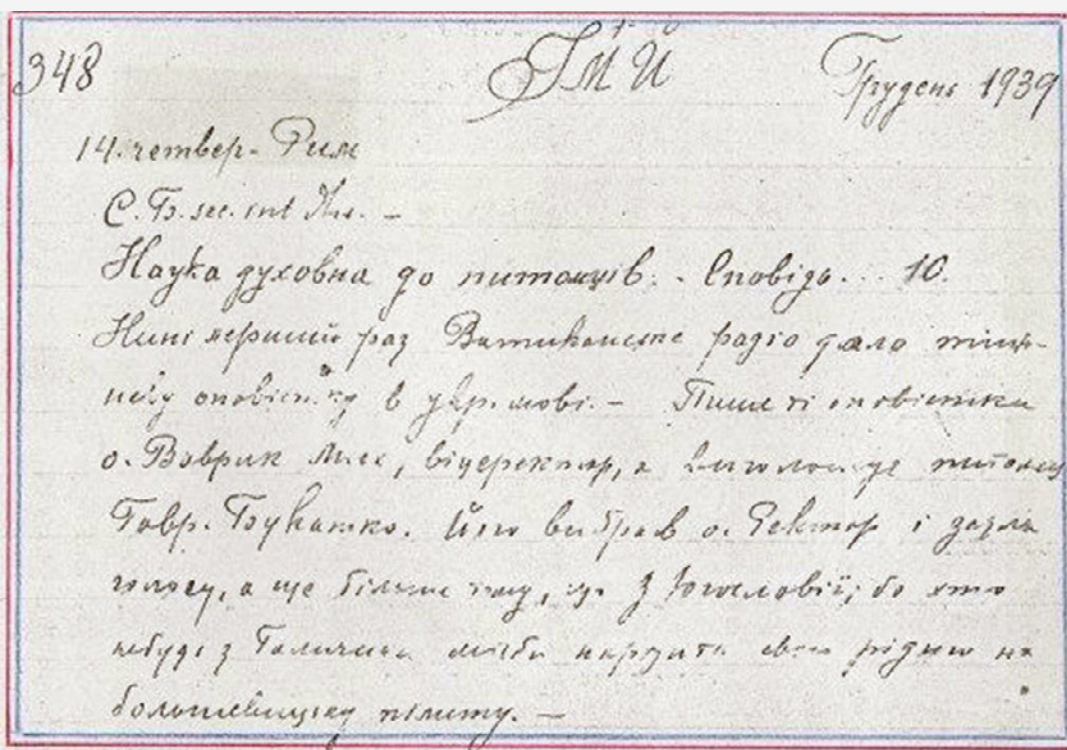 348 ІМЙ Грудень 1939
14. четвер - Рим
С. Б. sec. int
Наука духовна до питомців. - Сповідь... 10.
Нині перший раз Ватиканське радіо дало
оповістку в укр. мові. - Пише ті оповістки
о. Воврик Мих, віцеректор, а виголошує питомец
Гавр. Букатко. Його вибрав о. Ректор і задля
голосу, а ще більше тому, що з Югославії; бо хто
небудь з Галичини міг би наразити свою рідню на
большевицку пімсту. -